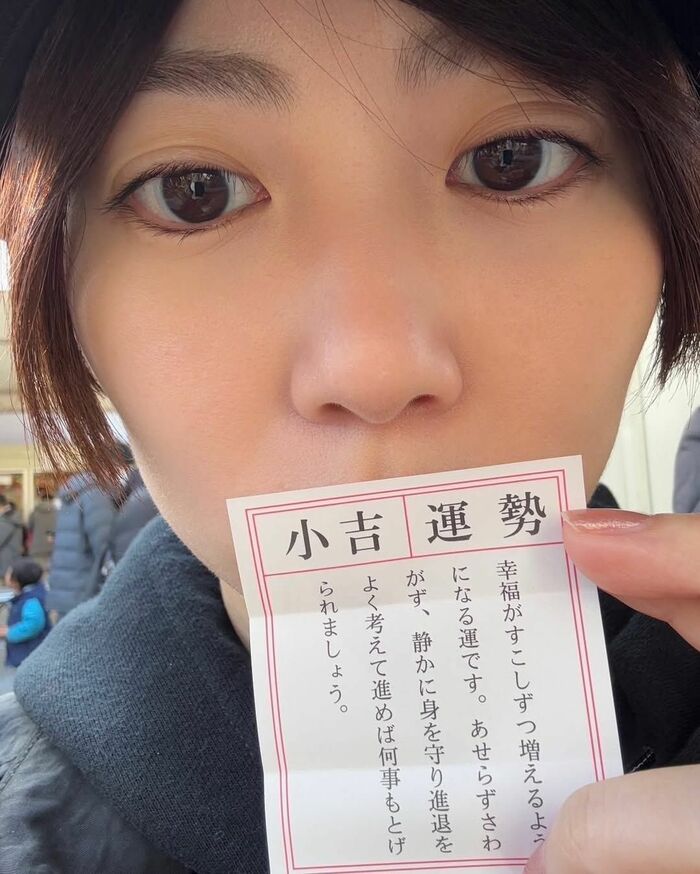 運勢
小吉
幸福がすこしずつ増えるよう
になる運です。あせらずさわ
がず、静かに身を守り進退を
よく考えて進めば何事もとげ
られましょう。